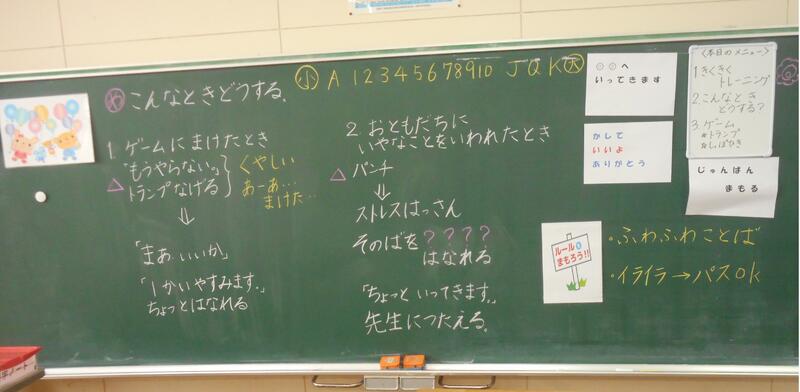 め こんなときどうする。
小 A 1 2 3 4 5 6 7 8 9 10 J Q K 大
1. ゲームにまけたとき
「もうやらない。」
△ トランプなげる
くやしい
あーあ…
まけた…
⇓
「まあ、いいか」
「1かいやすみます。」
ちょっとはなれる
2. おともだちに
いやなことをいわれたとき
△ パンチ
⇓
ストレスはっさん
そのばを????
はなれる
「ちょっといってきます。」
先生につたえる。
○○へ
いってきます
かして
いいよ
ありがとう
〈本日のメニュー〉
1 きくきく
トレーニング
2. こんなとき
どうする?
3. ゲーム
*トランプ
*しっぽひき
じゅんばん
まもる
ルールを
まもろう!!
・ふわふわことば
・イライラ→パスOk